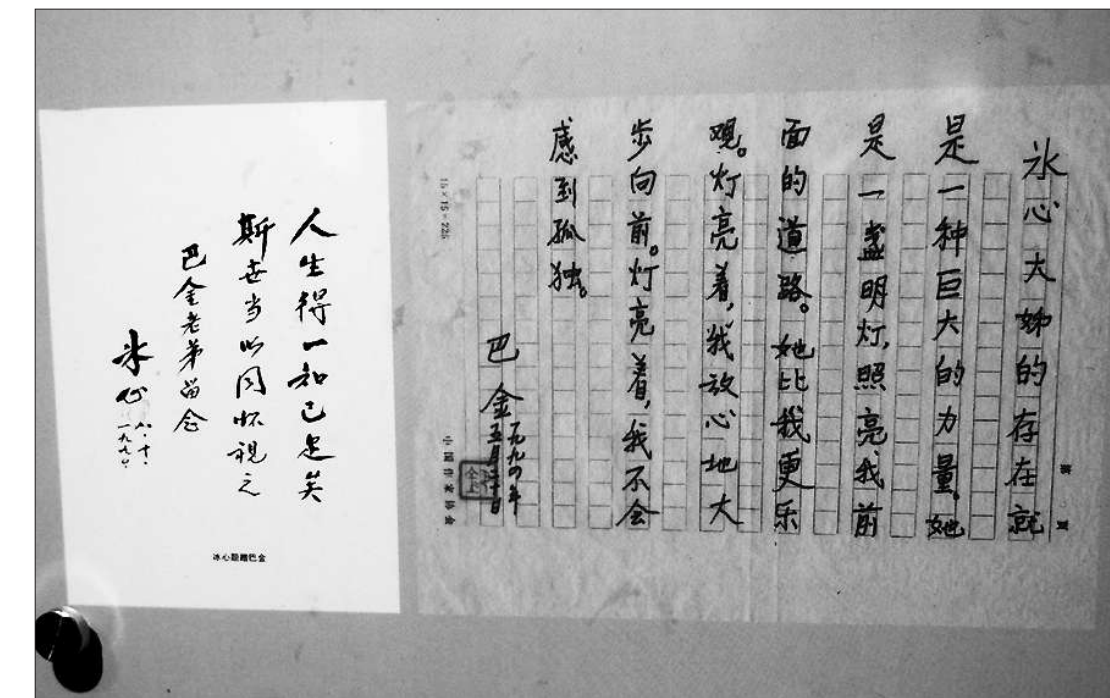 冰心大姊的存在就
是一种巨大的力量。她
是一盏明灯,照亮我前
面的道路。她比我更乐
观。灯亮着,我放心地大
步向前。灯亮着,我不会
感到孤独。
巴金
一九九四年
五月二十日
15×15=225
中国作家协会
第 页
人生得一知己足矣
斯世当以同怀视之
巴金老弟留念
冰心
冰心题赠巴金